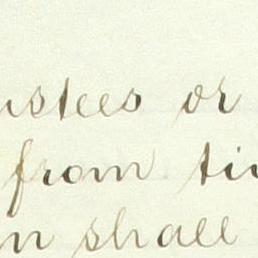 ustees or
from ti
n shall